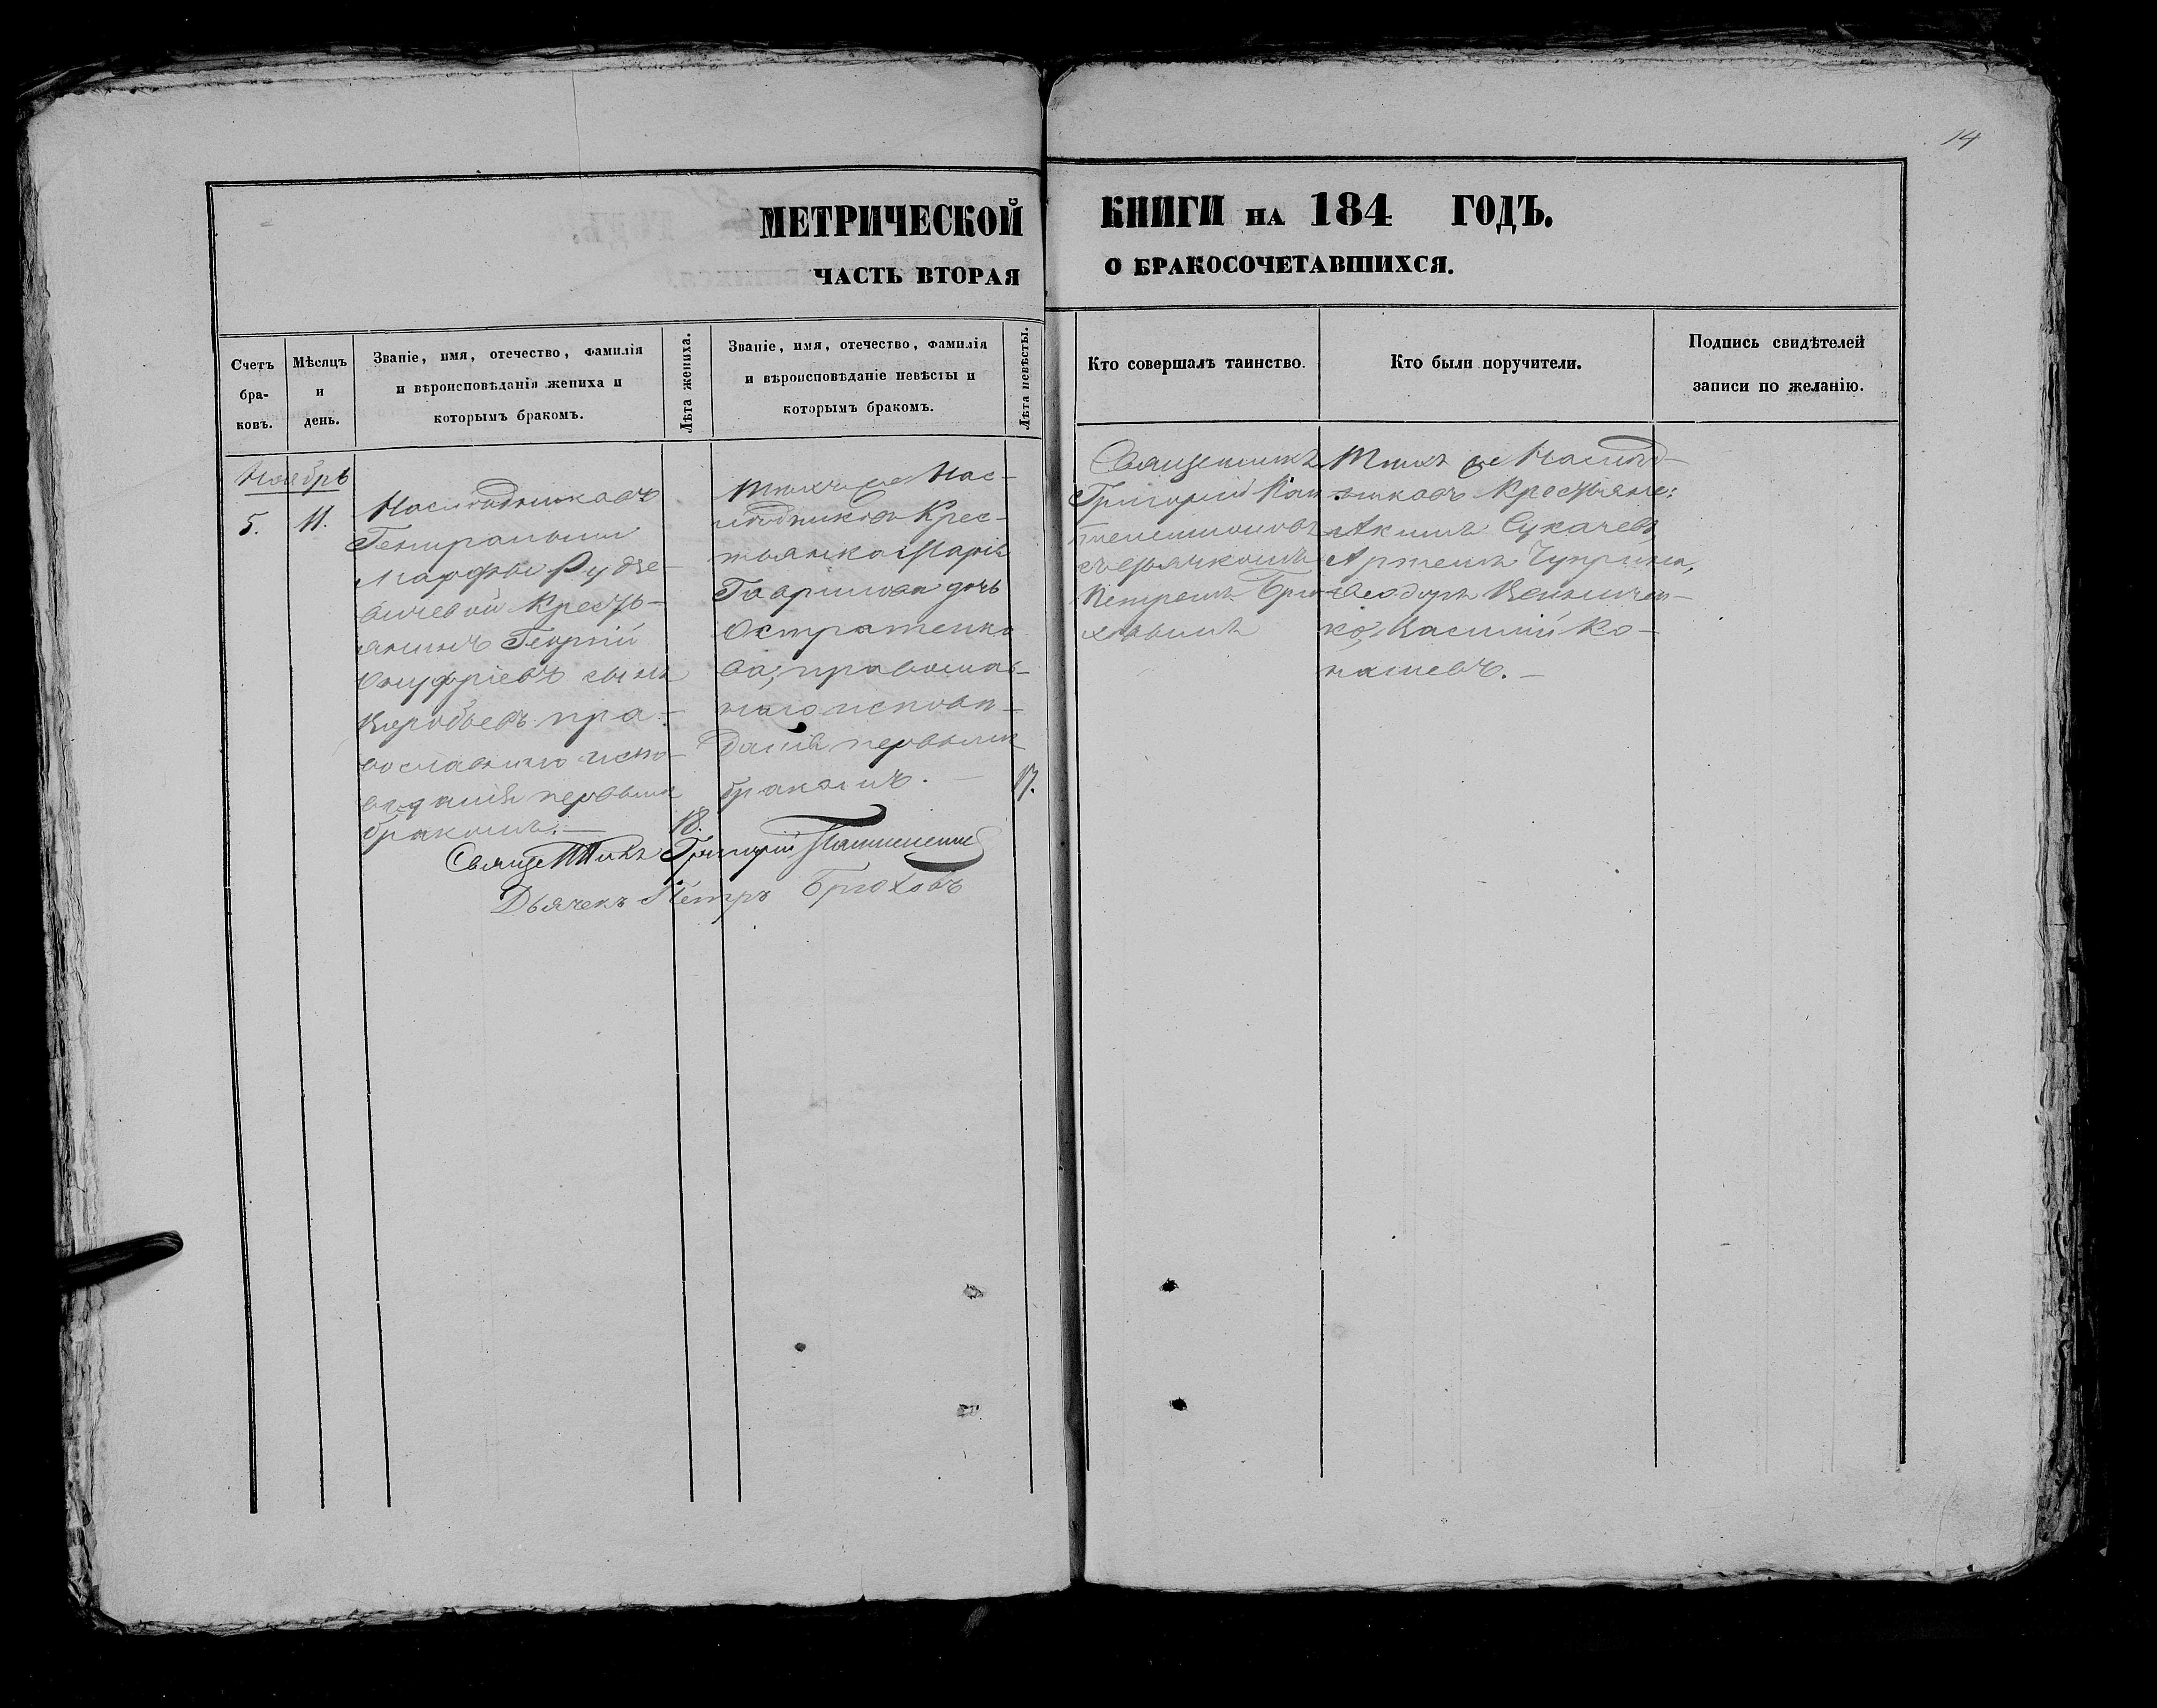 14
МЕТРИЧЕСКОЙ КНИГИ НА 184 ГОДЪ.
ЧАСТЬ ВТОРАЯ О БРАКОСОЧЕТАВШИХСЯ.
Счетъ бра-ковъ.
Мѣсяцъ и день.
Званіе, имя, отечество, фамилія
и вѣроисповѣданія жениха и
которымъ бракомъ.
Лѣта жениха.
Званіе, имя, отечество, фамилія
и вѣроисповѣданіе невѣсты и
которымъ бракомъ.
Лѣта невѣсты.
Кто совершалъ таинство.
Кто были поручители.
Подпись свидѣтелей
записи по желанію.
Ноябрь
5.
11.
Наслѣдниковъ
Генеральши
Марфы Рудзе-
вичевой Кресть-
янинъ Георгій
Онуфріевъ сынъ
Воробьевъ пра-
вославнаго испо-
вѣданія первымъ
бракомъ.—
18.
Тѣхъ же Нас-
лѣдниковъ Крес-
тьянка Марія
Гаврилова дочь
Остратенко
ва, православ-
наго исповѣ-
данія первымъ
бракомъ. —
17.
Священникъ
Григорій
съ дьячкомъ
Петромъ Брю-
ховымъ
Тѣхъ же Наслѣд-
никовъ Крестьяне:
Акимъ Сукачевъ
Артемъ Чуприна,
Ѳеодоръ
ко, Василій Ко-
нашевъ. —
Священникъ Григорій
Дьячекъ Петръ Брюховъ